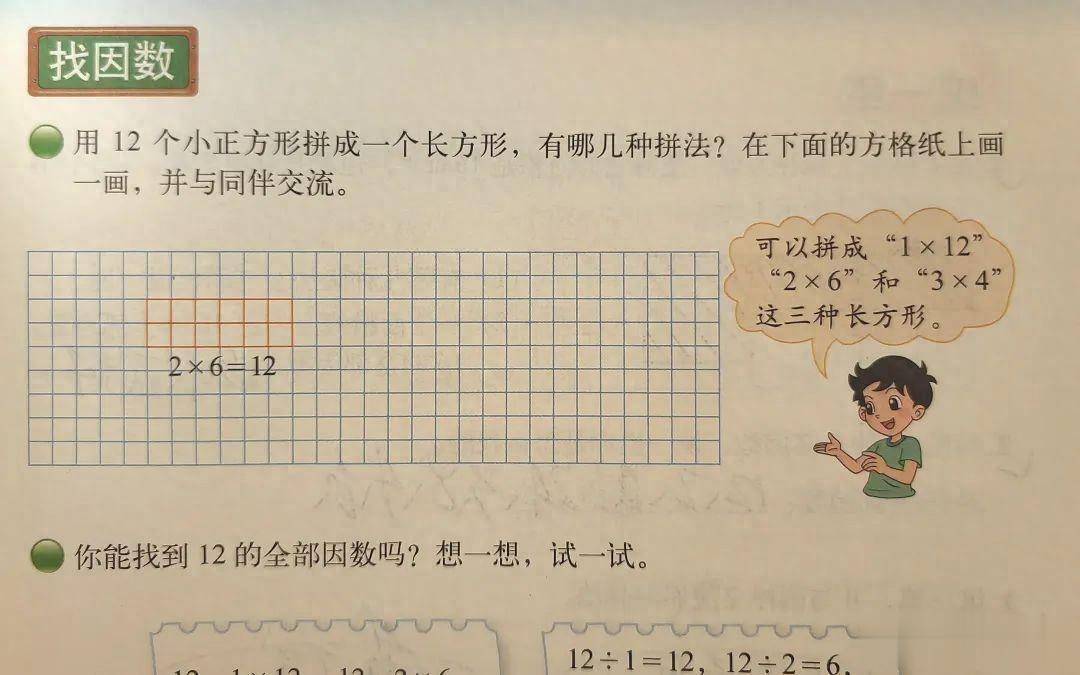 找因数
用 12 个小正方形拼成一个长方形，有哪几种拼法？在下面的方格纸上画
一画，并与同伴交流。
可以拼成“1×12”
“2×6”和“3×4”
这三种长方形。
2×6=12
你能找到 12 的全部因数吗？想一想，试一试。
12÷1=12，12÷2=6，